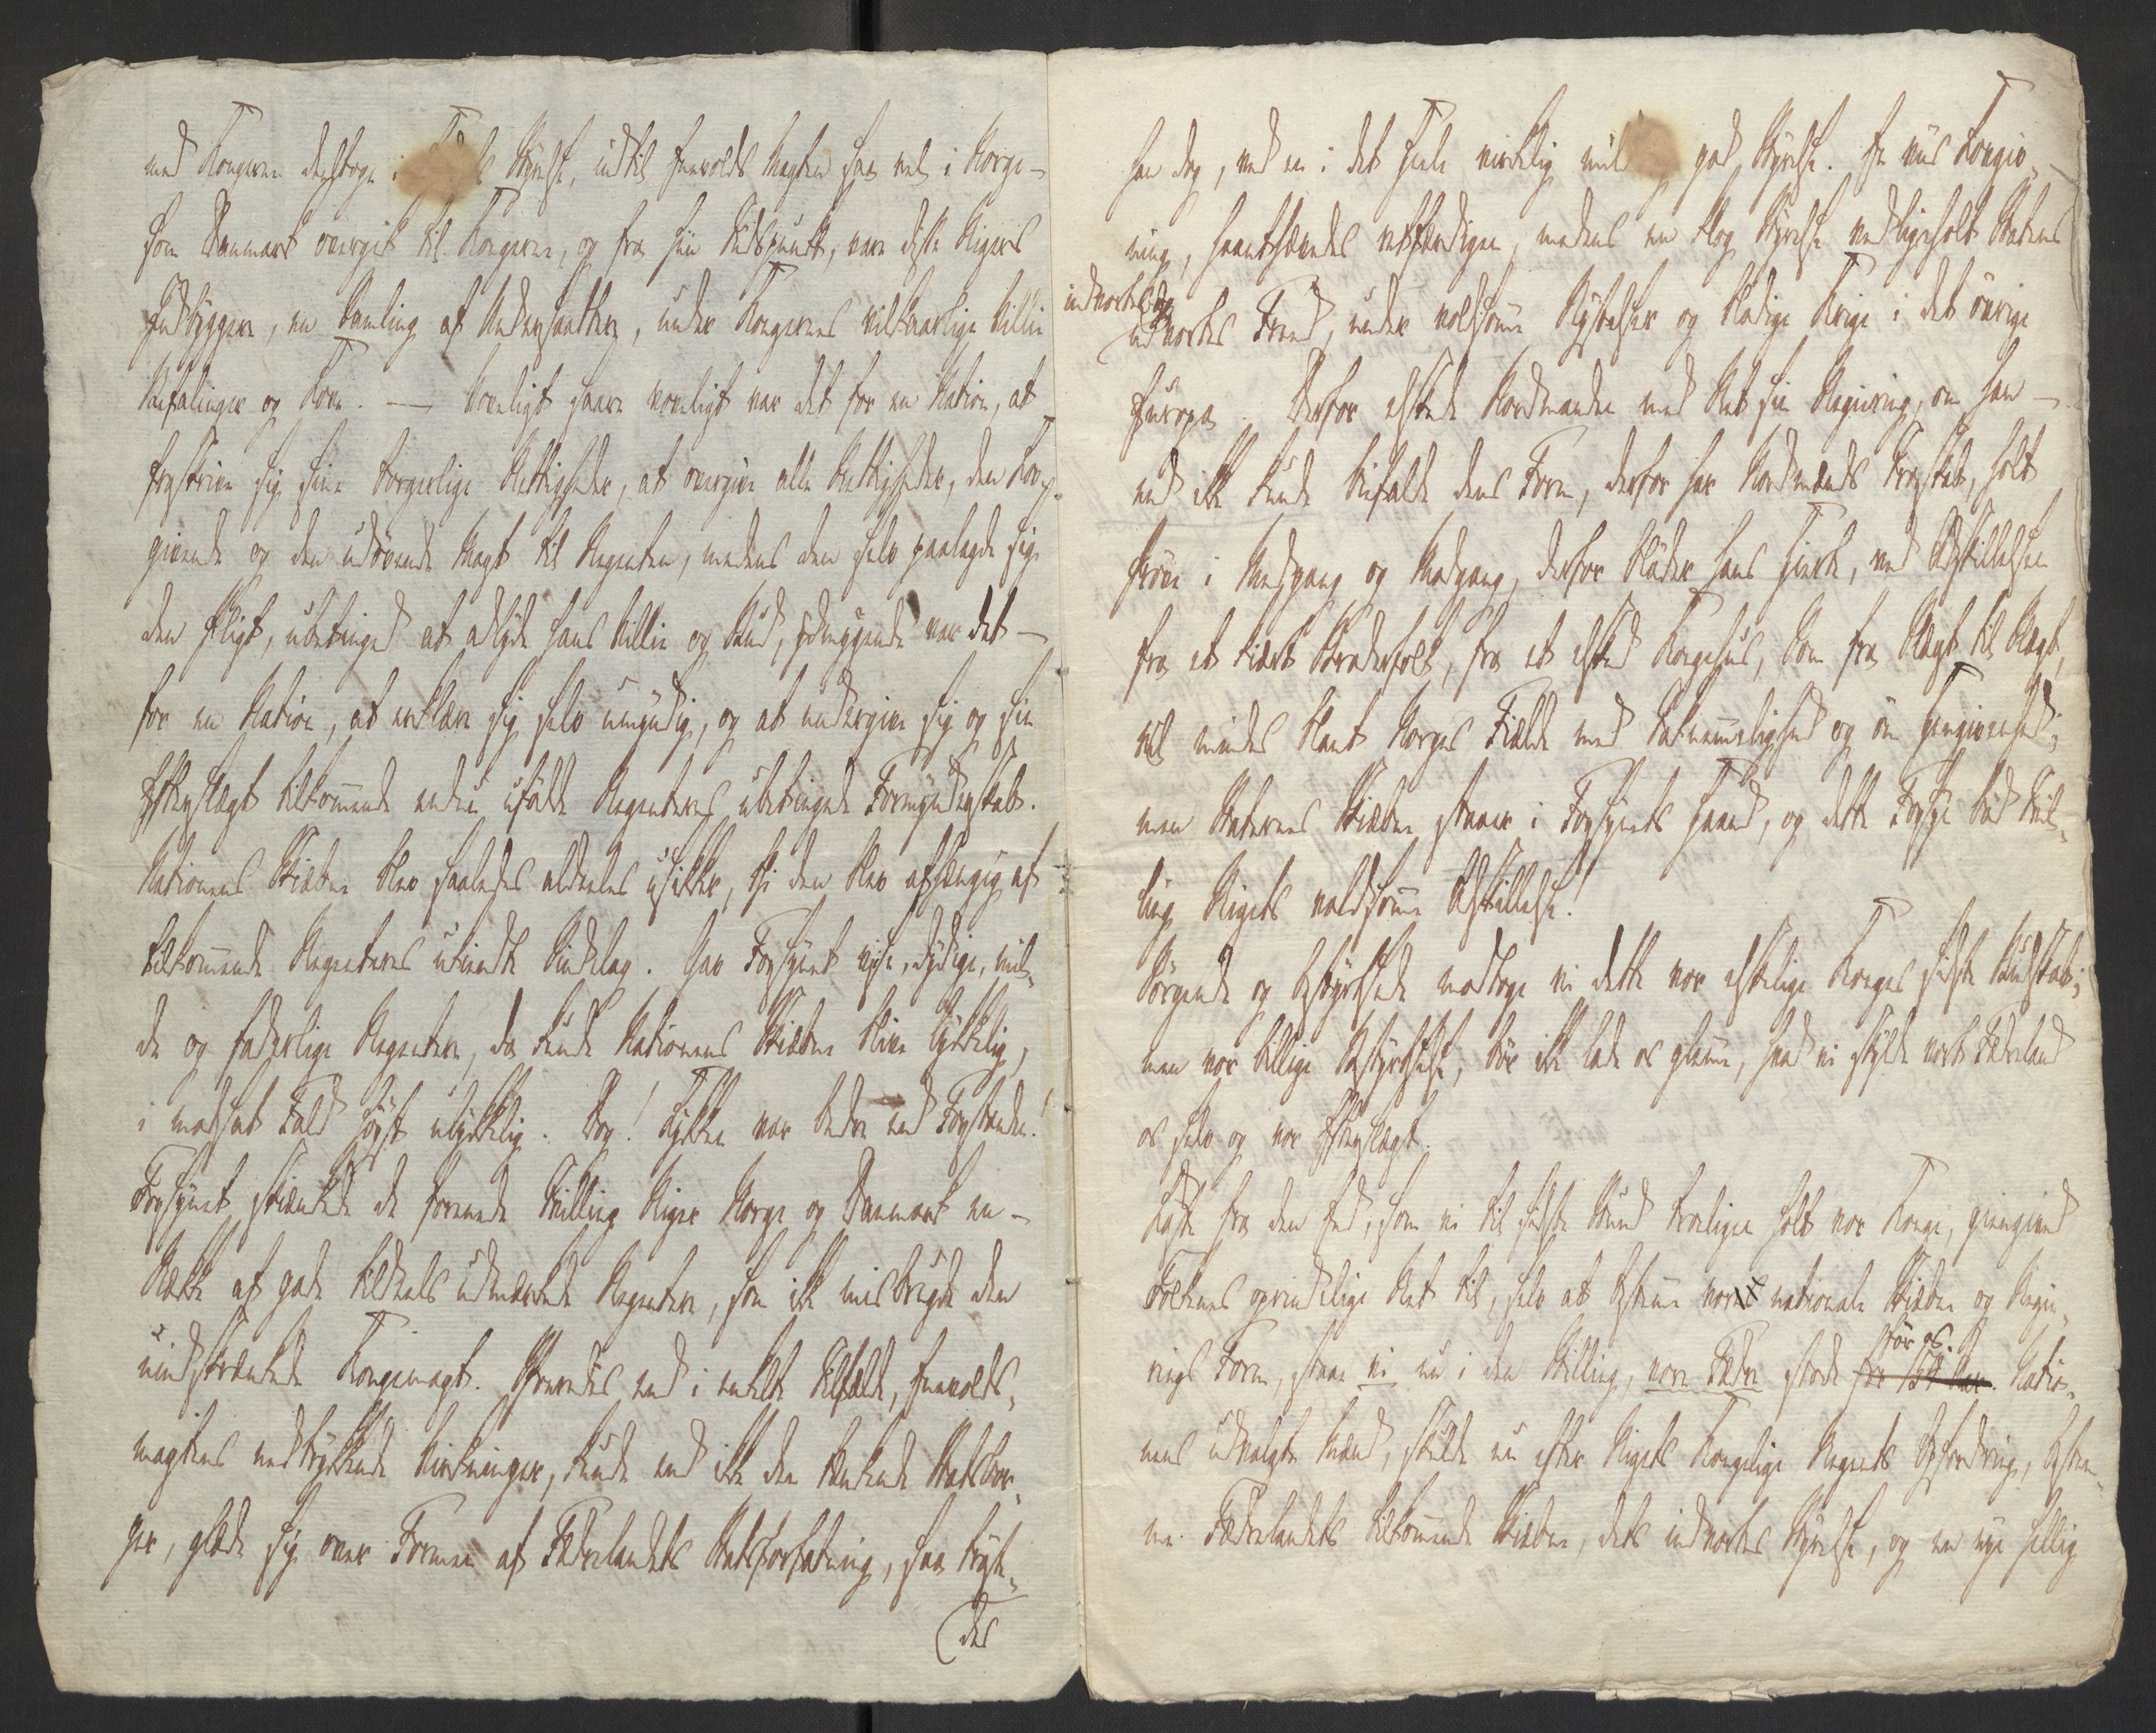 med Kongerne deeltoge i Rigets Styrelse, indtil Enevolds Magten saa vel i Norge –
som Danmark overgik til Kongerne, og fra hiin Tidspunkt, vare disse Rigers
Indbyggere, en Samling af Undersaatter, under Kongernes vilkaarlige Villie
Befalinger og Love. — Voveligt saare voveligt var det for en Nation, at
fraskrive sig sine borgerlige Rettigheder, at overgive alle Rettigheder, den Lov-
givende og den udøvende Magt til Regenten, medens den selv paalagde sig
den Pligt, ubetinget at adlyde hans Villie og Bud, ydmygende var det –
for en Nation, at erklære sig selv umyndig, og at undergive sig og sin
Efterslægt tilkommende endnu ufødte Regenteres ubetingede Formynderskab.
Nationens Skiæbne blev saaledes aldeeles usikker, thi den blev afhængig af
tilkommende Regenteres ukiendte Sindelag. Gav Forsynet viise, dydige, mil-
de og faderlige Regentere, da kunde Nationens Skiæbne blive lykkelig,
i modsat Fald høyst ulykkelig. Dog! Lykken var bedre end Forstanden!
Forsynet skiænkede de forenede Tvilling Riger Norge og Danmark en –
Række af gode tildeels udmærkede Regentere, som ikke misbrugte den
uindskrænkede Kongemagt. Sporedes end i enkelte Tilfælde, Enevolds-
magtens nedtrykkende Virkninger, kunde end ikke den tænkende Statsbor-
ger, glæde sig over Formen af Fædrelandets Statsforfatning, saa trøste-
des
han dog, ved en i det Hele virkelig mild god Styrelse. En viis Lovgiv-
ning, haanthævedes retfærdigen, medens en klog Styrelse vedligeholdt Statens
indvortes og
udvortes Fred, under voldsomme Rystelser og blodige Krige i det øvrige
Europa. Derfor elskede Nordmanden med Ret sin Regiering, om han –
end ikke kunde bifalde dens Form, derfor har Nordmænds Troskab, holdt
Prøve i Medgang og Modgang, derfor bløder hans Hierte, ved Adskillelsen
fra et kiært Broderfolk, fra et elsket Kongehuus, som fra Slægt til Slægt,
vil mindes blant Norges Fielde med Taknemmelighed og øm Hengivenhed;
men Staternes Skiæbne staaer i Forsynets Haand, og dette Forsyn bød Tvil-
ling Rigets voldsomme Adskillelse!
Sørgende og bestyrtsede modtoge vi dette vor elskelige Konges sidste Budskab;
men vor billige Bestyrtselse, bør ikke lade os glemme, hvad vi skylde vort Fædreland
os selv og vor Efterslægt.
Løste fra den Eed, som vi til sidste Stund troeligen holdt vor Konge, giengivne
Folkenes oprindelige Ret til, selv at bestemme vor nationale Skiæbne og Regie-
rings Form, staae vi nu i den Stilling, vore Fædre stode før os. Natio-
nens udvalgte Mænd, skulde nu efter Rigets Kongelige Regents Opfordring, bestem-
me Fædrelandets tilkommende Skiæbne, dets indvortes Styrelse, og en nye hellig